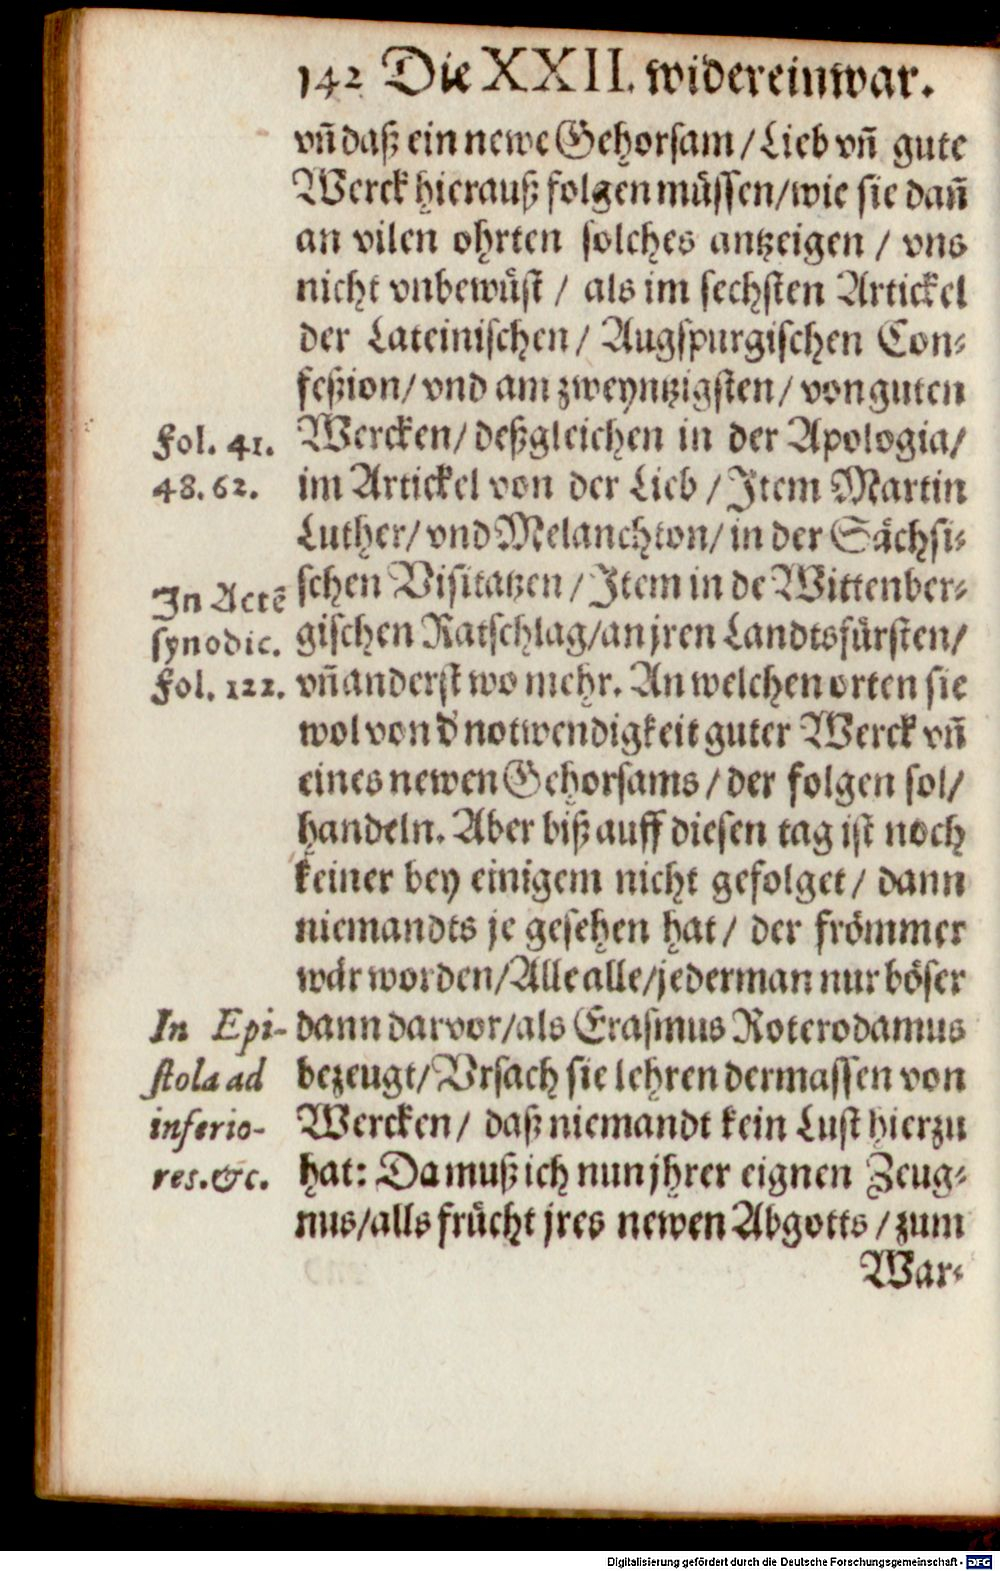 142 Die XXII. widereinwar.
vñ daß ein newe Gehorsam / Lieb vñ gute
Werck hierauß folgen müssen / wie sie dañ
an vilen ohrten solches antzeigen / vns
nicht vnbewüst / als im sechsten Artickel
der Lateinischen / Augspurgischen Con-
feßion / vnd am zweyntzigsten / von guten
Wercken / deßgleichen in der Apologia /
im Artickel von der Lieb / Item Martin
Luther / vnd Melanchton / in der Sächsi-
schen Visitatzen / Item in de Wittenber-
gischen Ratschlag / an jren Landtsfürsten /
vñ anderst wo mehr. An welchen orten sie
wol von d' notwendigkeit guter Werck vñ
eines newen Gehorsams / der folgen sol /
handeln. Aber biß auff diesen tag ist noch
keiner bey einigem nicht gefolget / dann
niemandts je gesehen hat / der frömmer
wär worden / Alle alle / jederman nur böser
dann darvor / als Erasmus Roterodamus
bezeugt / Vrsach sie lehren dermassen von
Wercken / daß niemandt kein Lust hierzu
hat: Da muß ich nun jhrer eignen Zeug-
nus / alls frücht jres newen Abgotts / zum
War-
Fol. 41.
48. 62.
In Actẽ
synodic.
Fol. 122.
In Epi-
stola ad
inferio-
res. &c.
Digitalisierung gefördert durch die Deutsche Forschungsgemeinschaft - DFG